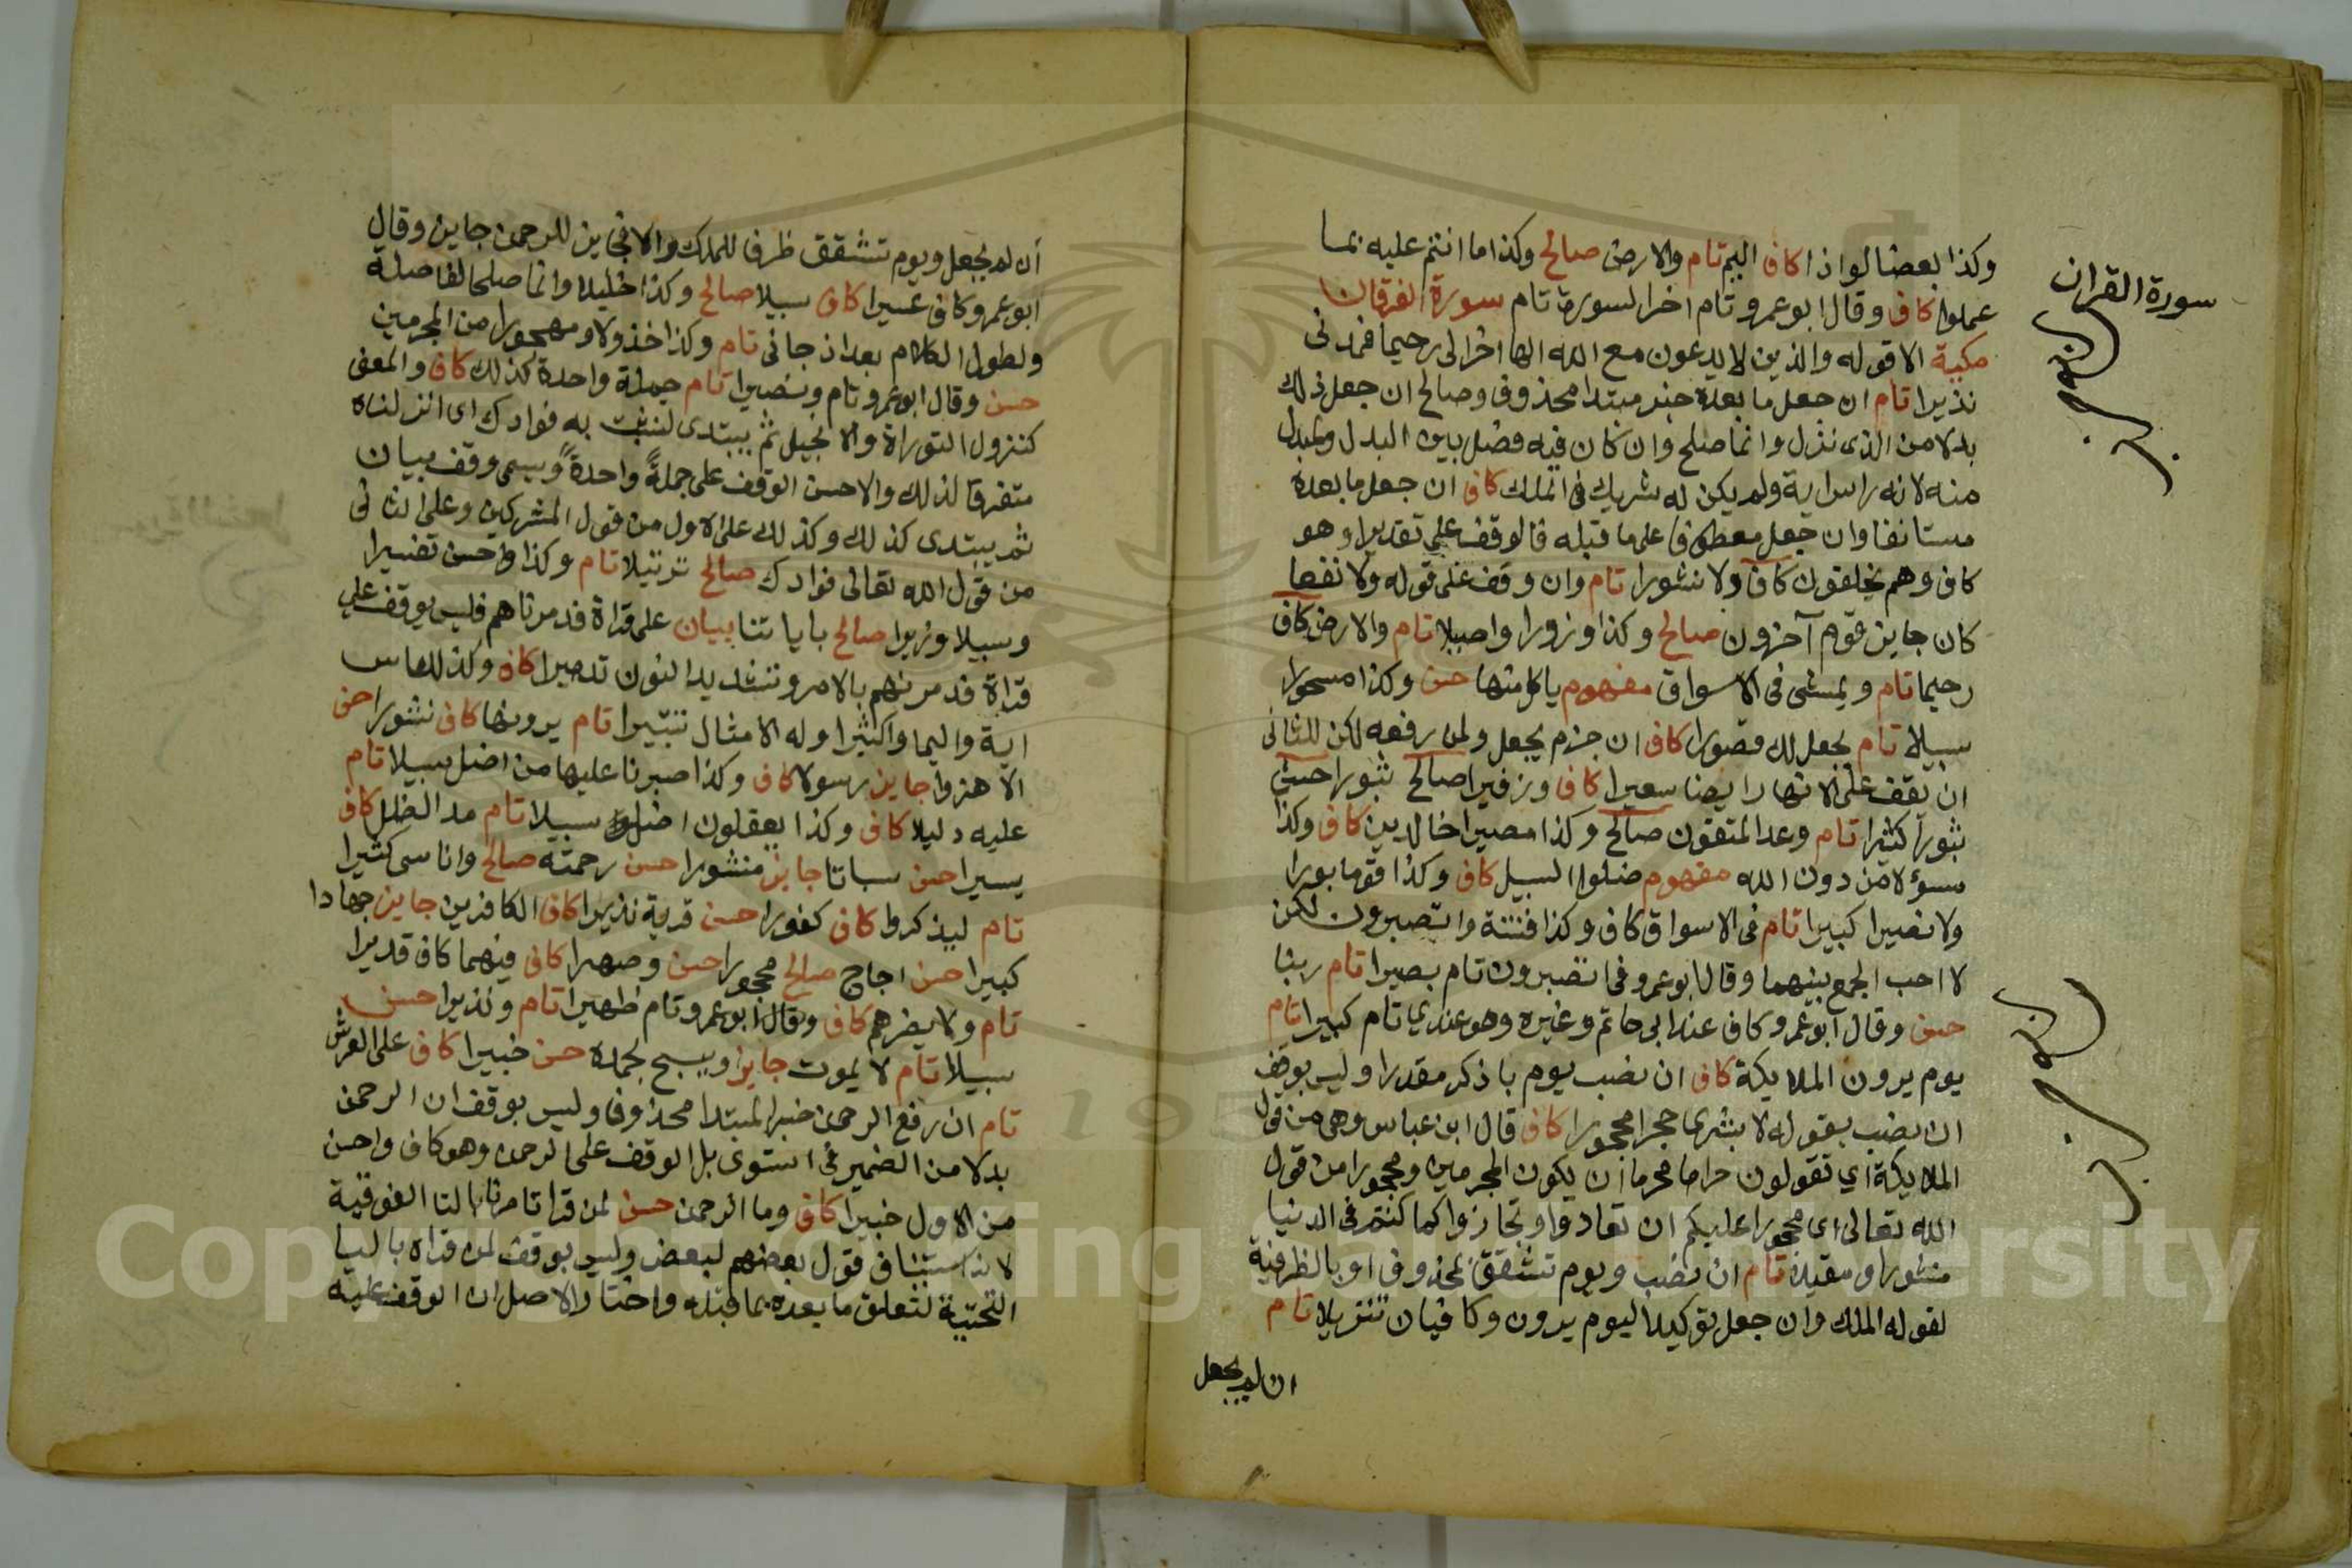 وكذا بعضا لواذا كاف اليم تام والارض صالح وكذا ما انتم عليه بما
عملوا كاف وقال ابو عمرو تام اخر السورة تام سورة الفرقان
مكية الا قوله والذين لا يدعون مع الله الها اخر الى رحيما فمدنى
نذيرا تام ان جعل ما بعده خبر مبتدا محذوف وصالح ان جعل ذلك
بدلا من الذى نزل وانما صلح وان كان فيه فصل بين البدل والمبدل
منه لانه راس اية ولم يكن له شريك فى الملك كاف ان جعل ما بعده
مستانفا وان جعل معطوفا على ما قبله فالوقف على تقديرا وهو
كاف وهم يخلقون كاف ولا نشورا تام وان وقف على قوله ولا نفعا
كان جايز قوم آخرون صالح وكذا وزورا واصيلا تام والارض كاف
رحيما تام ويمشى فى الاسواق مفهوم ياكل منها حسن وكذا مسحورا
سبيلا تام يجعل لك قصورا كاف ان جزم يجعل ولمن رفعه لكن للثانى
ان يقف على الانهار ايضا سعيرا كاف وزفيرا صالح ثبورا حسن
ثبورا كثيرا تام وعد المتقون صالح وكذا مصيرا خالدين كاف وكذا
مسؤلا من دون الله مفهوم ضلوا السبيل كاف وكذا قوما بورا
ولا نصيرا كبيرا تام فى الاسواق كاف وكذا فتنة واتصبرون لكن
لا احب الجمع بينهما وقال ابو عمرو فى اتصبرون تام بصيرا تام ربنا
حسن وقال ابو عمرو كاف عند ابى حاتم وغيره وهو عندي تام كبيرا تام
يوم يرون الملايكة كاف ان نصب يوم باذكر مقدرا وليس بوقف
ان نصب بقوله لا بشرى حجرا محجورا كاف قال ابن عباس وهى من قول
الملايكة اي تقولون حراما محرما ان يكون المجرمين ومحجورا من قول
الله تعالى اى محجورا عليكم ان تعاذوا وتجازوا كما كنتم فى الدنيا
منثورا ومقيلا تام ان نصب ويوم تشقق بمحذوف او بالظرفية
لقوله الملك وان جعل توكيدا ليوم يرون وكافيان تنزيلا تام
ان لم يجعل
سورة القران
ان لم يجعل ويوم تشقق ظرفا للملك والا فجايز للرحمن جايز وقال
ابو عمرو كاف عسيرا كاف سبيلا صالح وكذا خليلا وانما صلحا لفاصلة
ولطول الكلام بعد اذ جانى تام وكذا خذولا ومهجورا من المجرمين
حسن وقال ابو عمرو تام ونصيرا تام جملة واحدة كذلك كاف والمعنى
كنزول التوراة والانجيل ثم يبتدى لنثبت به فوادك اى انزلناه
متفرقا لذلك والاحسن الوقف على جملةً واحدةً ويسمى وقف بيان
ثم يبتدى كذلك وكذلك على الاول من قول المشركين وعلى الثانى
من قول الله تعالى فوادك صالح ترتيلا تام وكذا واحسن تفسيرا
وسبيلا وزيرا صالح باياتنا بيان على قراة فدمرناهم فليس بوقف على
قراة فدمرنهم بالامر وتشديد النون تدميرا كاف وكذا للناس
اية واليما وكثيرا وله الامثال تتبيرا تام يرونها كاف نشورا حسن
الا هزوا جايز رسولا كاف وكذا صبرنا عليها من اضل سبيلا تام
عليه دليلا كاف وكذا يعقلون اضل سبيلا تام مد الظل كاف
يسيرا حسن سباتا جايز منشورا حسن رحمته صالح واناسى كثيرا
تام ليذكروا كاف كفورا حسن قرية نذيرا كاف الكافرين جايز جهادا
كبيرا حسن اجاج صالح محجورا حسن وصهرا كافى فيهما كاف قديرا
تام ولا يضرهم كاف وقال ابو عمرو تام ظهيرا تام ونذيرا حسن
سبيلا تام لا يموت جايز ويسبح بحمده حسن خبيرا كاف على العرش
تام ان رفع الرحمن خبر المبتدا محذوفا وليس بوقف ان الرحمن
بدلا من الضمير فى استوى بل الوقف على الرحمن وهو كاف واحسن
من الاول خبيرا كاف وما الرحمن حسن لمن قرا تامرنا بالتا الفوقية
لانه استيناف قول بعضهم لبعض وليس بوقف لمن قراه باليا
التحتية لتعلق ما بعده بما قبله واختار الاصل ان الوقف عليه
Copyright © King Saud University